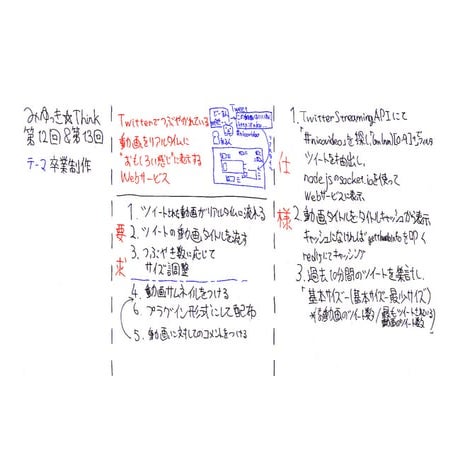 みゆっき☆Think
第12回&第13回
テーマ 卒業制作
Twitterでつぶやかれている
動画をリアルタイムに
"おもしろい感じ"に表示する
Webサービス
Tweet
要求
1. ツイートされた動画がリアルタイムに流れる
2. ツイートの動画タイトルを流す
3. つぶやき数に応じて
サイズ調整
4. 動画サムネイルをつける
6. プラグイン形式にして配布
5. 動画に対してのコメントをつける
仕様
1. Twitter Streaming APIにて
ツイートを抽出し、
node.jsのsocket.ioを使って
Webサービスに表示
2. 動画タイトルをタイトルキャッシュから表示
キャッシュになければgetthumbinfoを叩く
redisにてキャッシング
3. 過去10分間のツイートを集計し、
「基本サイズー(基本サイズー最小サイズ)